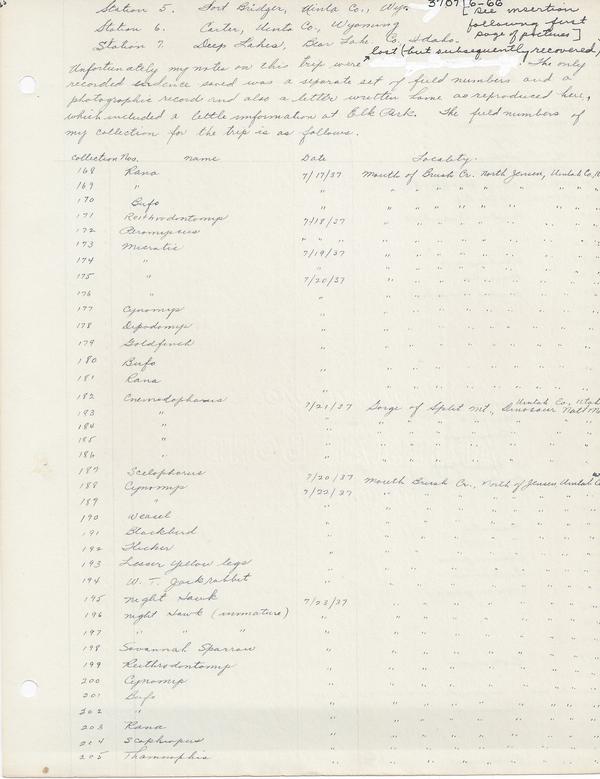 Station 5. Fort Bridger, Uinta Co., Wyo. 3707 6-66
Station 6. Carter, Uinta Co., Wyoming [See insertion following first page of pictures]
Station 7. Deep Lakes, Bear Lake Co. Idaho.
lost (but subsequently recovered)
Unfortunately my notes on this trip were . The only
recorded evidence saved was a separate set of field numbers and a
photographic record and also a letter written home as reproduced here,
which included a little information at Elk Park. The field numbers of
my collection for the trip is as follows.
Collection Nos. name Date Locality.
168 Rana 7/17/37 Mouth of Brush Cr. North Jensen, Uintah Co.
169 " " " " " " " "
170 Bufo " " " " " " "
171 Reithrodontomys 7/18/37 " " " " " "
172 Peromyscus " " " " " " " "
173 Microtis 7/19/37 " " " " " "
174 " " " " " " " "
175 " 7/20/37 " " " " " "
176 " " " " " " " "
177 Cynomys " " " " " " "
178 Dipodomys " " " " " " "
179 Goldfinch " " " " " " "
180 Bufo " " " " " " "
181 Rana " " " " " " "
182 Cnemodophorus 7/21/37 Gorge of Split Mt., Dinosaur Nat'l M Uintah Co., Utah
183 " " " " " " "
184 " " " " " " "
185 " " " " " " "
186 " " " " " " "
187 Scelophorus 7/20/37 Mouth Brush Cr., North of Jensen, Uintah
188 Cynomys 7/22/37 " " " " " "
189 " " " " " " " "
190 Weasel " " " " " " "
191 Blackbird " " " " " " "
192 Flicker " " " " " " "
193 Lesser Yellow legs " " " " " " "
194 W. T. Jackrabbit " " " " " " "
195 Night Hawk 7/23/37 " " " " " "
196 Night Hawk (immature) " " " " " " "
197 " " " " " " " " " "
198 Savannah Sparrow " " " " " " "
199 Reithrodontomys " " " " " " "
200 Cynomys " " " " " " "
201 Bufo " " " " " " "
202 " " " " " " " "
203 Rana " " " " " " "
204 Scaphiopus " " " " " " "
205 Thamnophis " " " " " " "